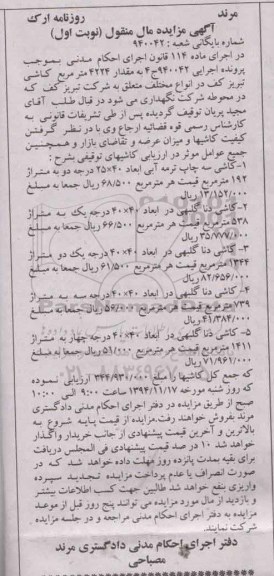 مرند روزنامه ارک
آگهی مزایده مال منقول (نوبت اول)
شماره بایگانی شعبه : ۹۴۰۰۴۲
در اجرای ماده ۱۱۴ قانون اجرای احکام مدنی بموجب
پرونده اجرایی ۹۴۰۰۴۲ج۴ به مقدار ۴۲۲۴ مترمربع کاشی
تبریز کف در انواع مختلف متعلق به شرکت تبریز کف که
در محوطه شرکت نگهداری می شود در قبال طلب آقای
مجید پریان توقیف گردیده پس از طی تشریفات قانونی به
کارشناس رسمی قوه قضائیه ارجاع وی با در نظر گرفتن
کیفت کاشیها و میزان عرضه و تقاضای بازار و همچنین
جمیع عوامل موثر در ارزیابی کاشیهای توقیفی بشرح :
۱-کاشی سه چاپ ترمه آبی ابعاد ۴۰×۲۵ درجه دو به متراژ
۱۹۲ مترمربع قیمت هر مترمربع ۶۸/۵۰۰ ریال جمعا به مبلغ
۱۳/۱۵۲/۰۰۰ ریال
۲-کاشی دنا گلبهی در ابعاد ۴۰×۴۰ درجه یک به متراژ
۵۳۸ مترمربع قیمت هر مترمربع ۶۶/۵۰۰ ریال جمعا به مبلغ
۳۵/۷۷۷/۰۰۰ ریال
۳- کاشی دنا گلبهی در ابعاد ۴۰×۴۰ درجه یک دو متراژ
۱۳۴۴ مترمربع قیمت هر مترمربع ۶۱/۵۰۰ ریال جمعا به مبلغ
۸۲/۶۵۶/۰۰۰ ریال
۴- کاشی دنا گلبهی در ابعاد ۴۰×۴۰ درجه سه به متراژ
۷۳۹ مترمربع قیمت هر مترمربع ۵۶/۰۰۰ ریال جمعا به مبلغ
۴۱/۳۸۴/۰۰۰ ریال
۵- کاشی دنا گلبهی در ابعاد ۴۰×۴۰ درجه چهار به متراژ
۱۴۱۱ مترمربع قیمت هر مترمربع ۵۱/۰۰۰ ریال جمعا به مبلغ
۷۱/۹۶۱/۰۰۰ ریال
که جمع کل کاشیها را مبلغ ۲۴۴/۹۳۰/۰۰۰ ارزیابی نموده
که روز شنبه مورخه ۱۳۹۴/۱۱/۱۷ ساعت ۹:۰۰ الی ۱۰:۰۰
صبح از طریق مزایده در دفتر اجرای احکام مدنی دادگستری
مرند بفروش خواهند رفت.مزایده از قیمت پایه شروع به
بالاترین و آخرین قیمت پیشنهادی از جانب خریدار واگذار
خواهد شد ۱۰ در صد قیمت پیشنهادی فی المجلس دریافت
برای بقیه بمدت پانزده روز مهلت داده خواهد شد که در
صورت انصراف یا عدم پرداخت مزایده تجدید سپرده
واریزی بنفع خواهد شد طالبین جهت کسب اطلاعات بیشتر
و بازدید از مال مورد مزایده می توانند پنج روز قبل از موعد
مزایده به دفتر اجرای احکام مدنی مراجعه و در جلسه مزایده
شرکت نمایند.
دفتر اجرای احکام مدنی دادگستری مرند
مصباحی